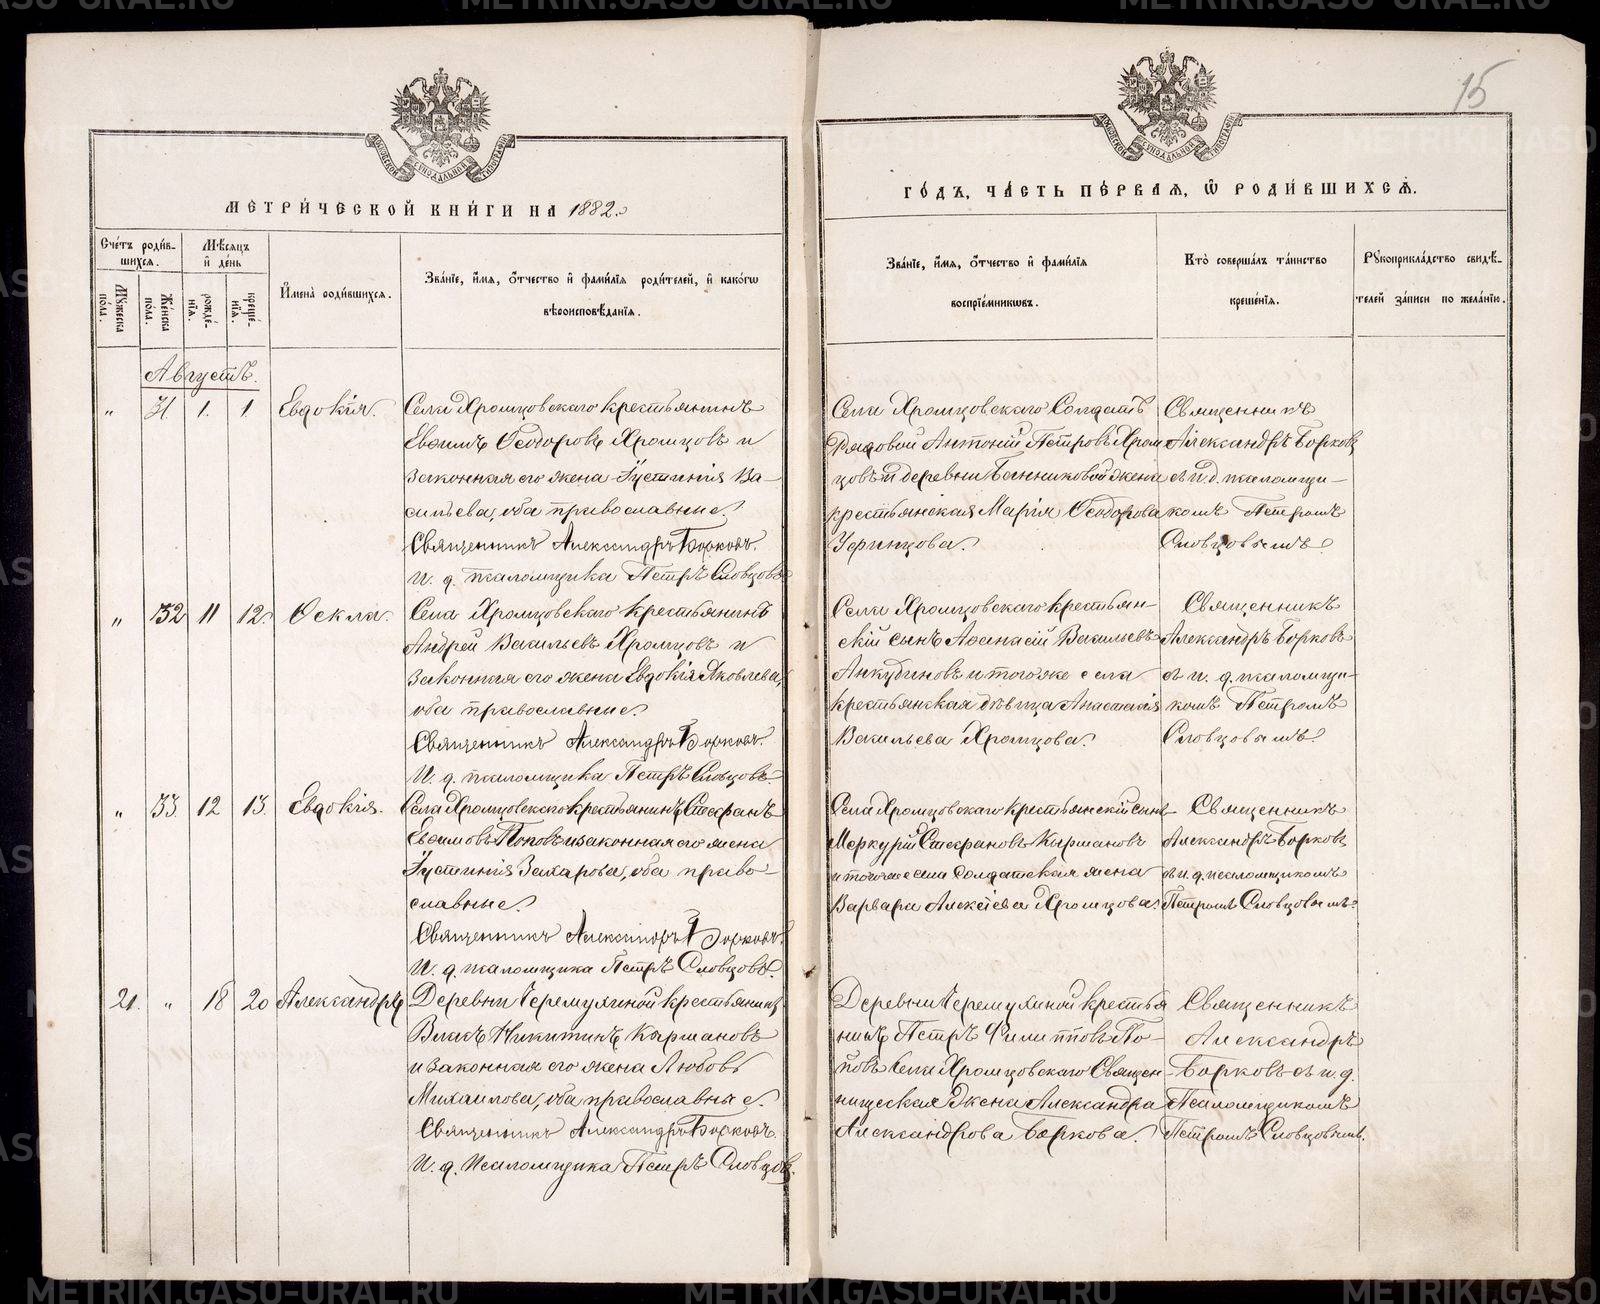 15
МЕТРИ́ЧЕСКОЙ КНИ́ГИ НА 1882.
ГО́ДЪ, ЧА́СТЬ ПЕ́РВАЯ, Ѡ РОДИ́ВШИХСѦ.
Сче́тъ роди́в-
шихсѧ.
Мꙋжеска пола.
Же́нска пола.
Мѣ́сѧцъ
и҆ де́нь
рожде́нїѧ.
креще́нїѧ.
И҆мена̀ роди́вшихсѧ.
Зва́нїе, и҆́мѧ, ѻ҆́тчество и҆ фами́лїѧ роди́телей, и҆ како́гѡ
вѣроисповѣ́данїѧ.
Зва́нїе, и҆́мѧ, ѻ҆́тчество и҆ фами́лїѧ
воспрїе́мникѡвъ.
Кто̀ соверша́лъ та́инство
креще́нїѧ.
Рꙋкоприкла́дство свидѣ́-
телей за́писи по жела́нїю.
Августъ.
" 31. 1. 1. Евдокія.
Села Хромцовскаго крестьянинъ
Евѳимъ Ѳеодоровъ Хромцовъ и
законная его жена Іустинія Ва-
сильева, оба православные.
Священникъ Александръ Борковъ.
И. д. псаломщика Петръ Словцовъ
Села Хромцовскаго Солдатъ
Рядовой Антоній Петровъ Хром
цовъ и деревни Банниковой жена
крестьянская Марія Ѳеодорова
Священникъ
Александръ Борков
съ и. д. псаломщи-
комъ Петромъ
Словцовымъ.
" 32 11 12. Ѳекла.
Села Хромцовскаго крестьянинъ
Андрей Васильевъ Хромцовъ и
законная его жена Евдокія Яковлева,
оба православные.
Священникъ Александръ Борковъ.
И. д. псаломщика Петръ Словцовъ
Села Хромцовскаго крестьян-
скій сынъ Аѳанасій Васильевъ
Анкудиновъ и того же села
крестьянская дѣвица Анастасія
Васильева Хромцова.
Священникъ
Александръ Борковъ
съ и. д. псаломщи-
комъ Петромъ
Словцовымъ.
" 33. 12 13. Евдокія.
Села Хромцовскаго крестьянинъ Стефанъ
Евѳимовъ Поповъ и законная его жена
Іустинія Захарова, оба право-
славные.
Священникъ Александръ Борковъ.
И. д. псаломщика Петръ Словцовъ.
Села Хромцовскаго крестьянскій сынъ
Меркурій Стефановъ Кырмановъ
и того же села Солдатская жена
Варвара Алексіева Хромцова.
Священникъ
Александръ Борковъ
съ и. д. псаломщикомъ
Петромъ Словцовымъ.
21. " 18 20 Александръ
Деревни Черемухиной крестьянинъ
Никитинъ Кырмановъ
и законная его жена Любовь
Михаилова, оба православные.
Священникъ Александръ Борковъ.
И. д. Псаломщика Петръ Словцовъ.
Деревни Черемухиной крестья
нинъ Петръ Филипповъ По-
повъ Села Хромцовскаго Священ-
ническая Жена Александра
Александрова Боркова.
Священникъ
Александръ
Борковъ съ и. д.
Псаломщикомъ
Петромъ Словцовымъ.
METRIKI.GASO-URAL.RU